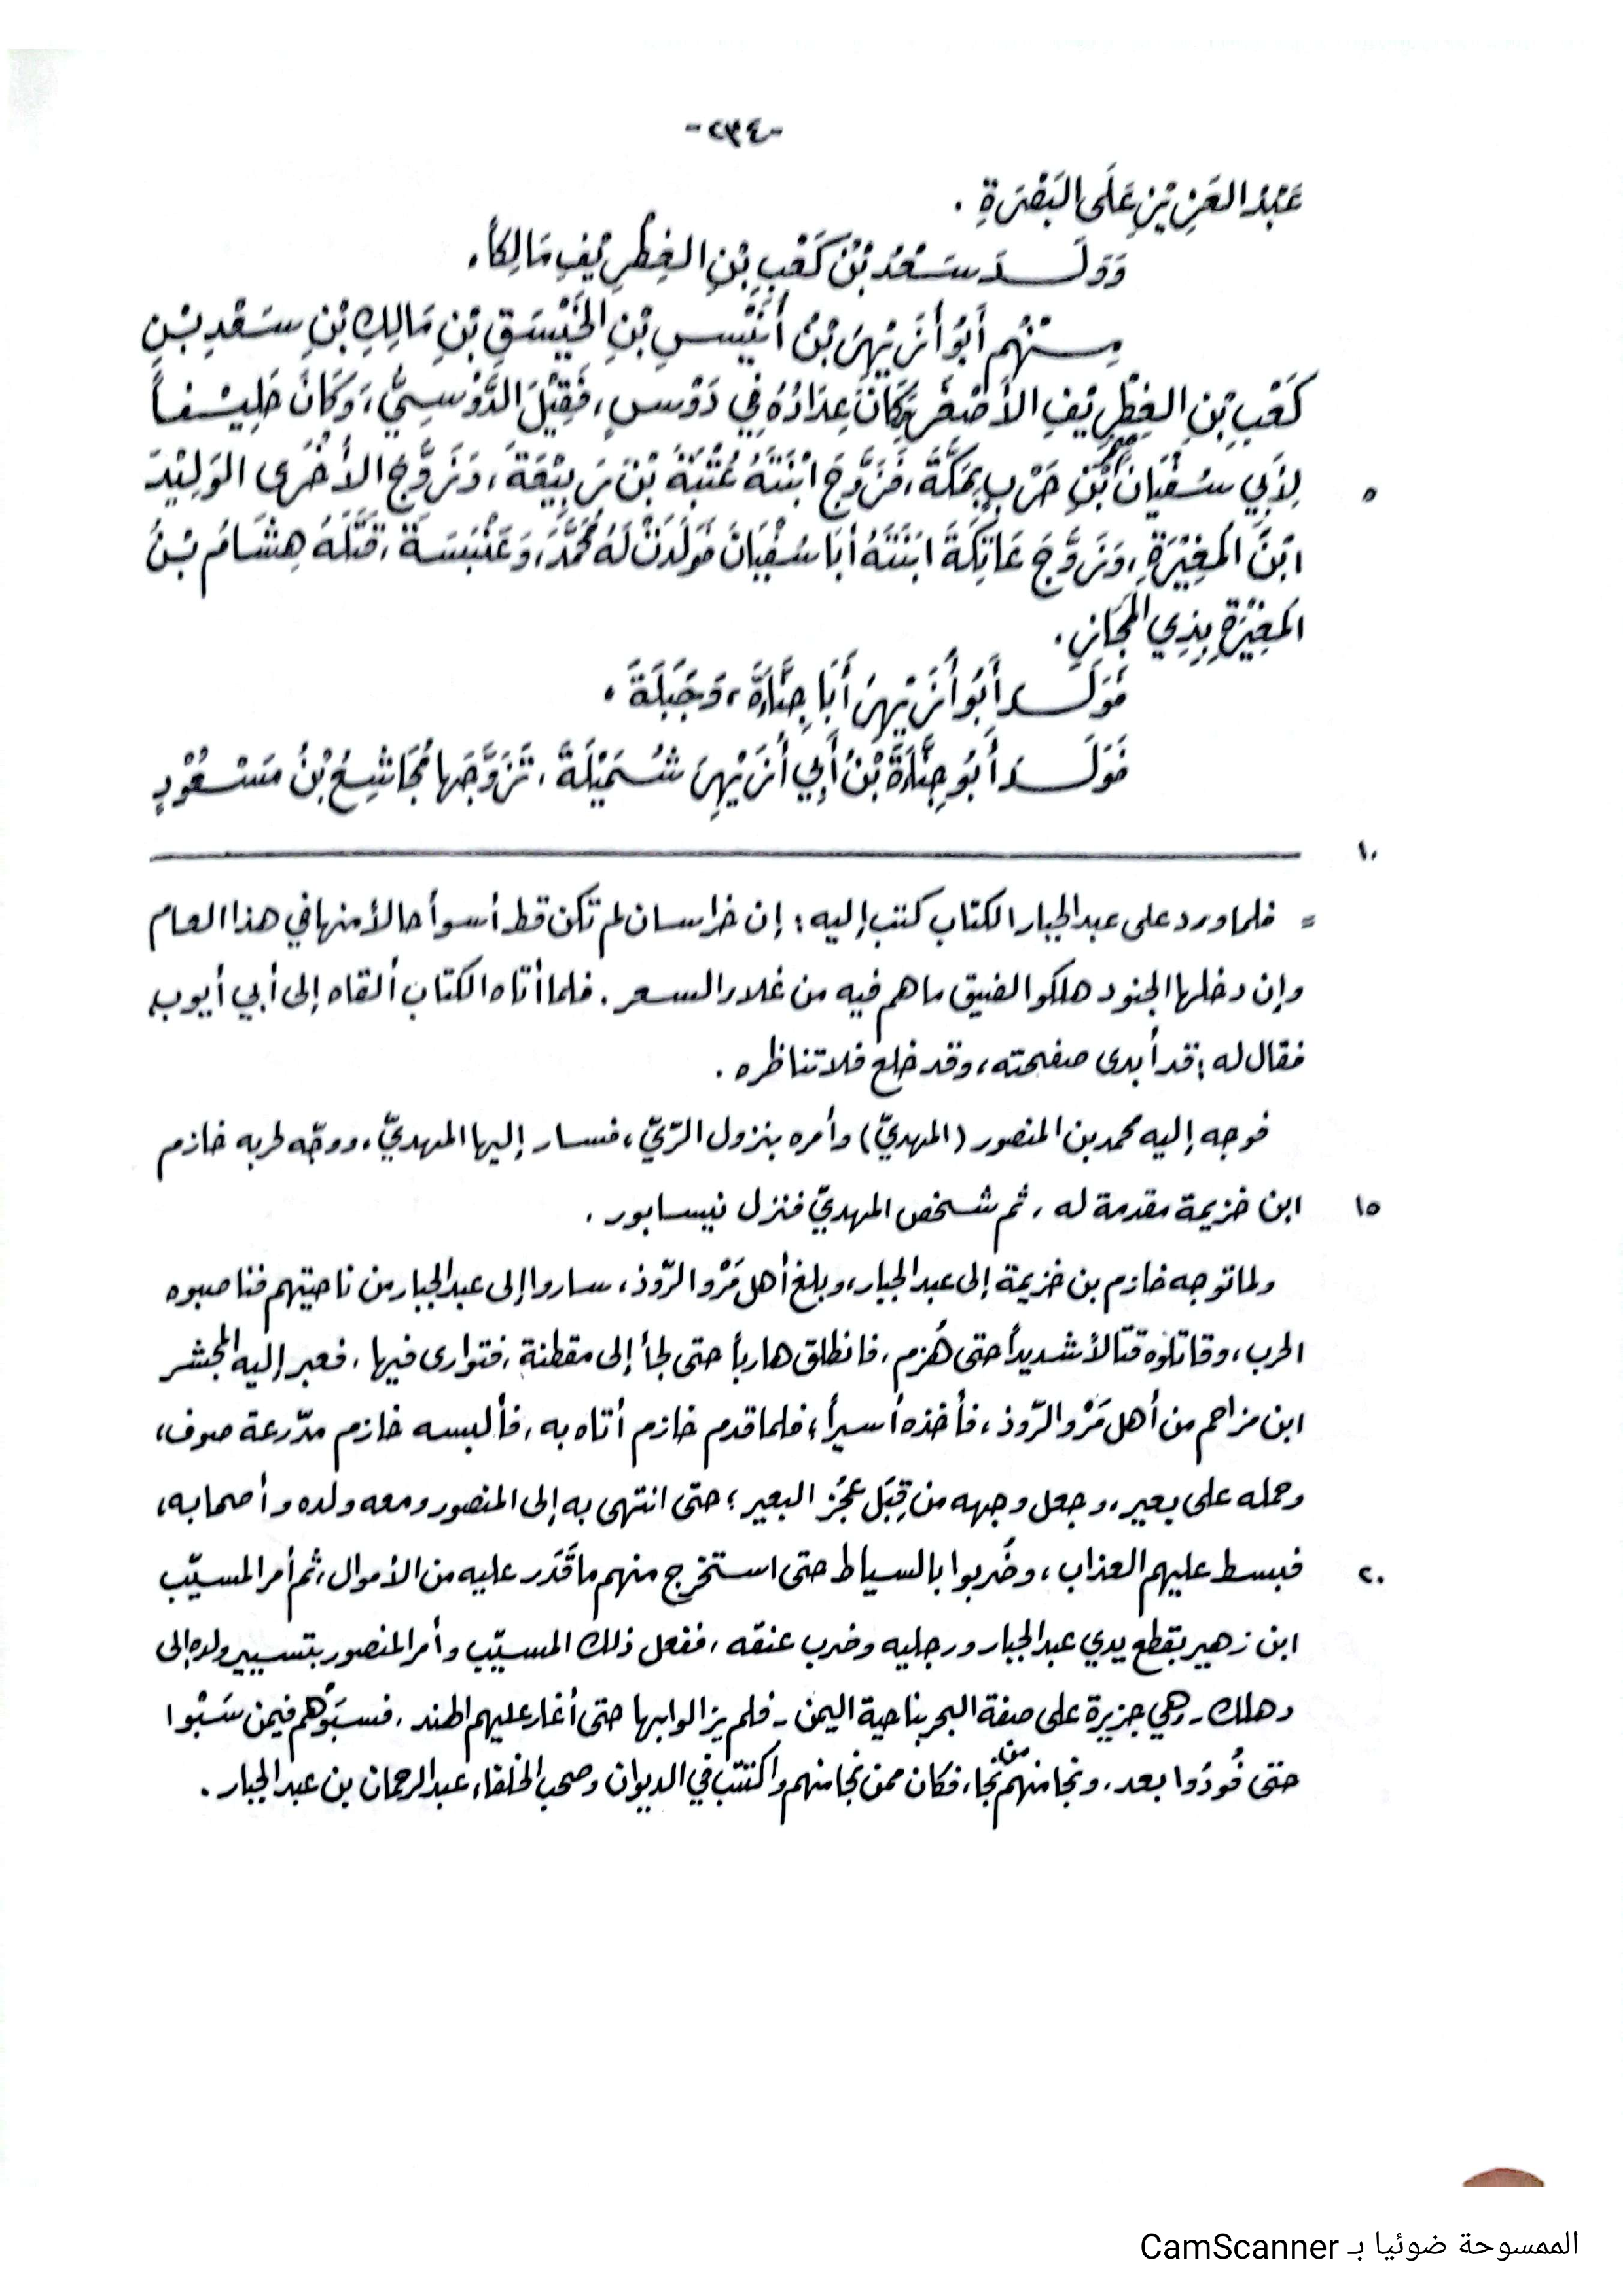 -٢٣٤-
عَبْدُ العَزِيْزِ عَلَى البَصْرَةِ .
وَوَلَــدَ سَعْدُ بْنُ كَعْبِ بْنِ الغِطْرِيْفِ مَالِكاً .
مِـنْهُم أَبُو أُزَيْهِرَ بْنُ أُنَيْسِ بْنِ الخَيْسَقِ بْنِ مَالِكِ بْنِ سَعْدِ بْنِ
كَعْبِ بْنِ الغِطْرِيْفِ الأَصْغَرِ وَكَانَ عِدَادُهُ فِي دَوْسٍ ، فَقِيْلَ الدَّوْسِيُّ ، وَكَانَ حَلِيْفاً
٥ لِأَبِي سُفْيَانَ بْنِ حَرْبٍ بِمَكَّةَ ، فَزَوَّجَ ابْنَتَهُ عُتْبَةَ بْنَ رَبِيْعَةَ ، وَزَوَّجَ الأُخْرَى الوَلِيْدَ
ابْنَ المُغِيْرَةِ ، وَزَوَّجَ عَاتِكَةَ ابْنَتَهُ أَبَا سُفْيَانَ فَوَلَدَتْ لَهُ مُحَمَّدَ ، وَعَنْبَسَةَ ، قَتَلَهُ هِشَامُ بْنُ
المُغِيْرَةِ بِذِي المَجَازِ .
فَوَلَــدَ أَبُو أُزَيْهِرَ أَبَا جِنَّاءَةَ ، وَجَبَلَةَ .
فَوَلَــدَ أَبُو جِنَّاءَةَ بْنُ أَبِي أُزَيْهِرَ شُمَيْلَةَ ، تَزَوَّجَها مُجَاشِعُ بْنُ مَسْعُوْدٍ
١٠
= فلما ورد على عبد الجبار الكتاب كتب إليه : إن خراسان لم تكن قط أسوأ حالاً منها في هذا العام
وإن دخلها الجنود هلكوا لضيق ما هم فيه من غلاء السعر . فلما أتاه الكتاب ألقاه إلى أبي أيوب ،
فقال له : قد أبدى صفحته ، وقد خلع فلا تناظره .
فوجه إليه محمد بن المنصور (المهديّ) وأمره بنزول الرّيّ ، فسار إليها المهديّ ، ووجّه لحربه خازم
١٥ ابن خزيمة مقدمة له ، ثم شخص المهديّ فنزل نيسابور .
ولما توجه خازم بن خزيمة إلى عبد الجبار ، وبلغ أهل مَرْو الرّوذ ، ساروا إلى عبد الجبار من ناحيتهم فناصبوه
الحرب ، وقاتلوه قتالاً شديداً حتى هُزم ، فانطلق هارباً حتى لجأ إلى مقطنة ، فتوارى فيها ، فعبر إليه المجشر
ابن مزاحم من أهل مَرْو الرّوذ ، فأخذه أسيراً ؛ فلما قدم خازم أتاه به ، فألبسه خازم مدّرعة صوف ،
وحمله على بعير ، وجعل وجهه من قِبَل عَجُز البعير ؛ حتى انتهى به إلى المنصور ومعه ولده وأصحابه ،
٢٠ فبسط عليهم العذاب ، وضُربوا بالسياط حتى استخرج منهم ما قَدَر عليه من الأموال ، ثم أمر المسيّب
ابن زهير بقطع يدي عبد الجبار ورجليه وضرب عنقه ، ففعل ذلك المسيّب وأمر المنصور بتسيير ولده إلى
دهلك - وهي جزيرة على ضفة البحر بناحية اليمن - فلم يزالوا بها حتى أغار عليهم الهند ، فسبَوْهم فيمن سَبَوْا
حتى فُودُوا بعد ، ونجا منهم من نجا ، فكان ممن نجا منهم واكتتب في الديوان وصحب الخلفاء عبد الرحمان بن عبد الجبار .
الممسوحة ضوئيا بـ CamScanner